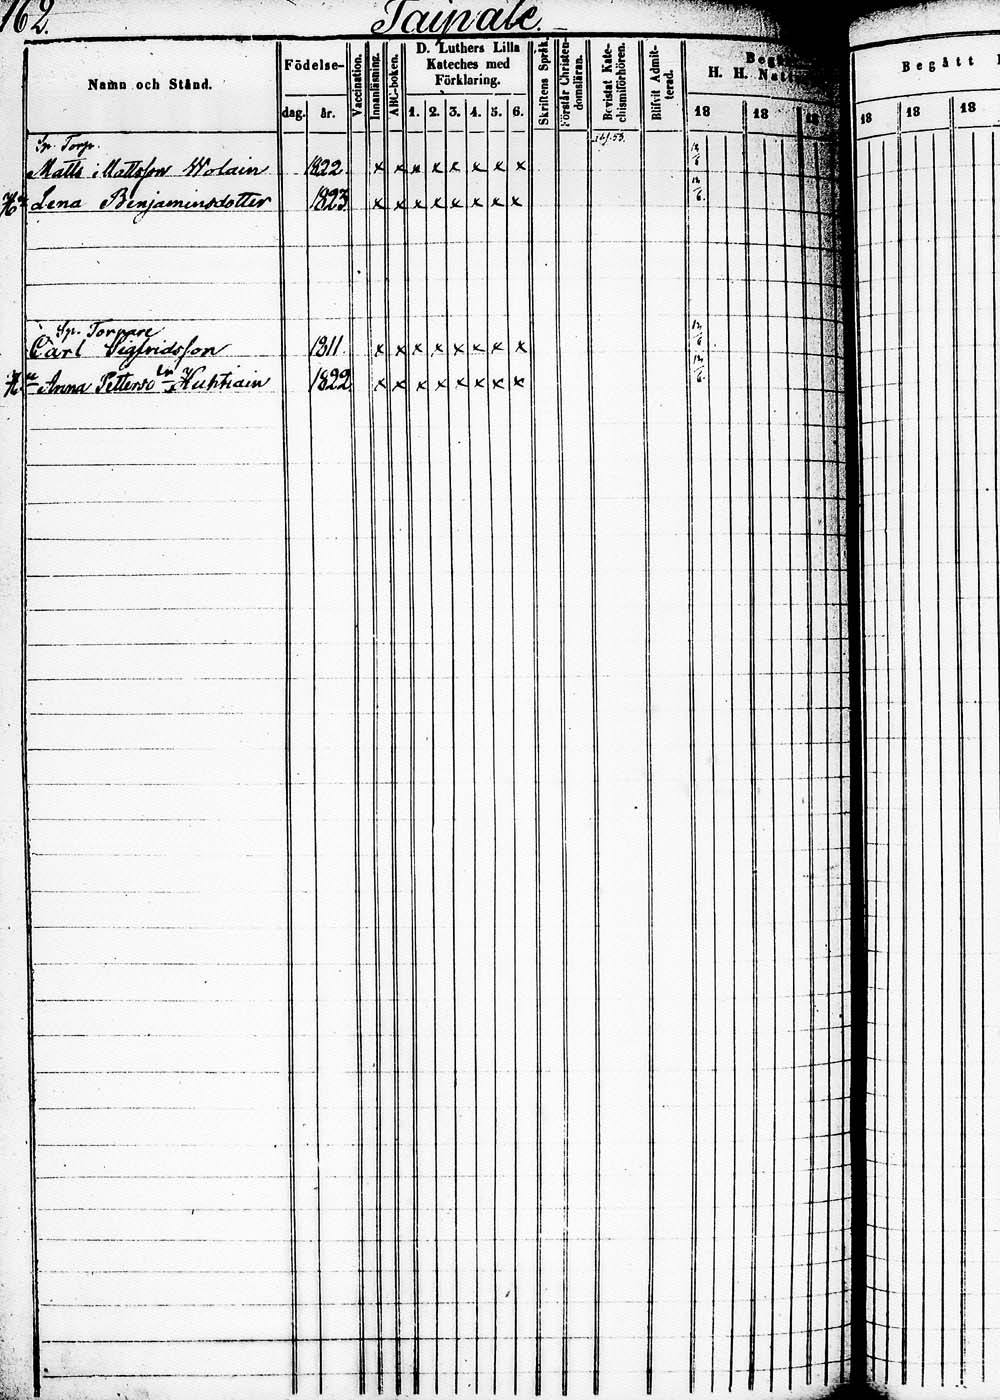 162.
Taipale.
Namn och Stånd.
Födelse-
dag.
år.
Vaccination.
Innanläsning.
ABC-boken.
D. Luthers Lilla
Kateches med
Förklaring.
1. 2. 3. 4. 5. 6.
Skriftens Språk.
Förstår Christen-
domsläran.
Bevistat Kate-
chismiförhören.
Blifvit Admit-
terad.
H. H. Natt
18 18 18
Begått
18 18 18
Sp. Torp.
Matts Mattsson Wolain 1822 x x x x x x x x
Hu Lena Benjaminsdotter 1823 x x x x x x x x
Sp. Torpare
Carl Sigfridsson 1811 x x x x x x x x
Hu Anna Petterso 1822 x x x x x x x x